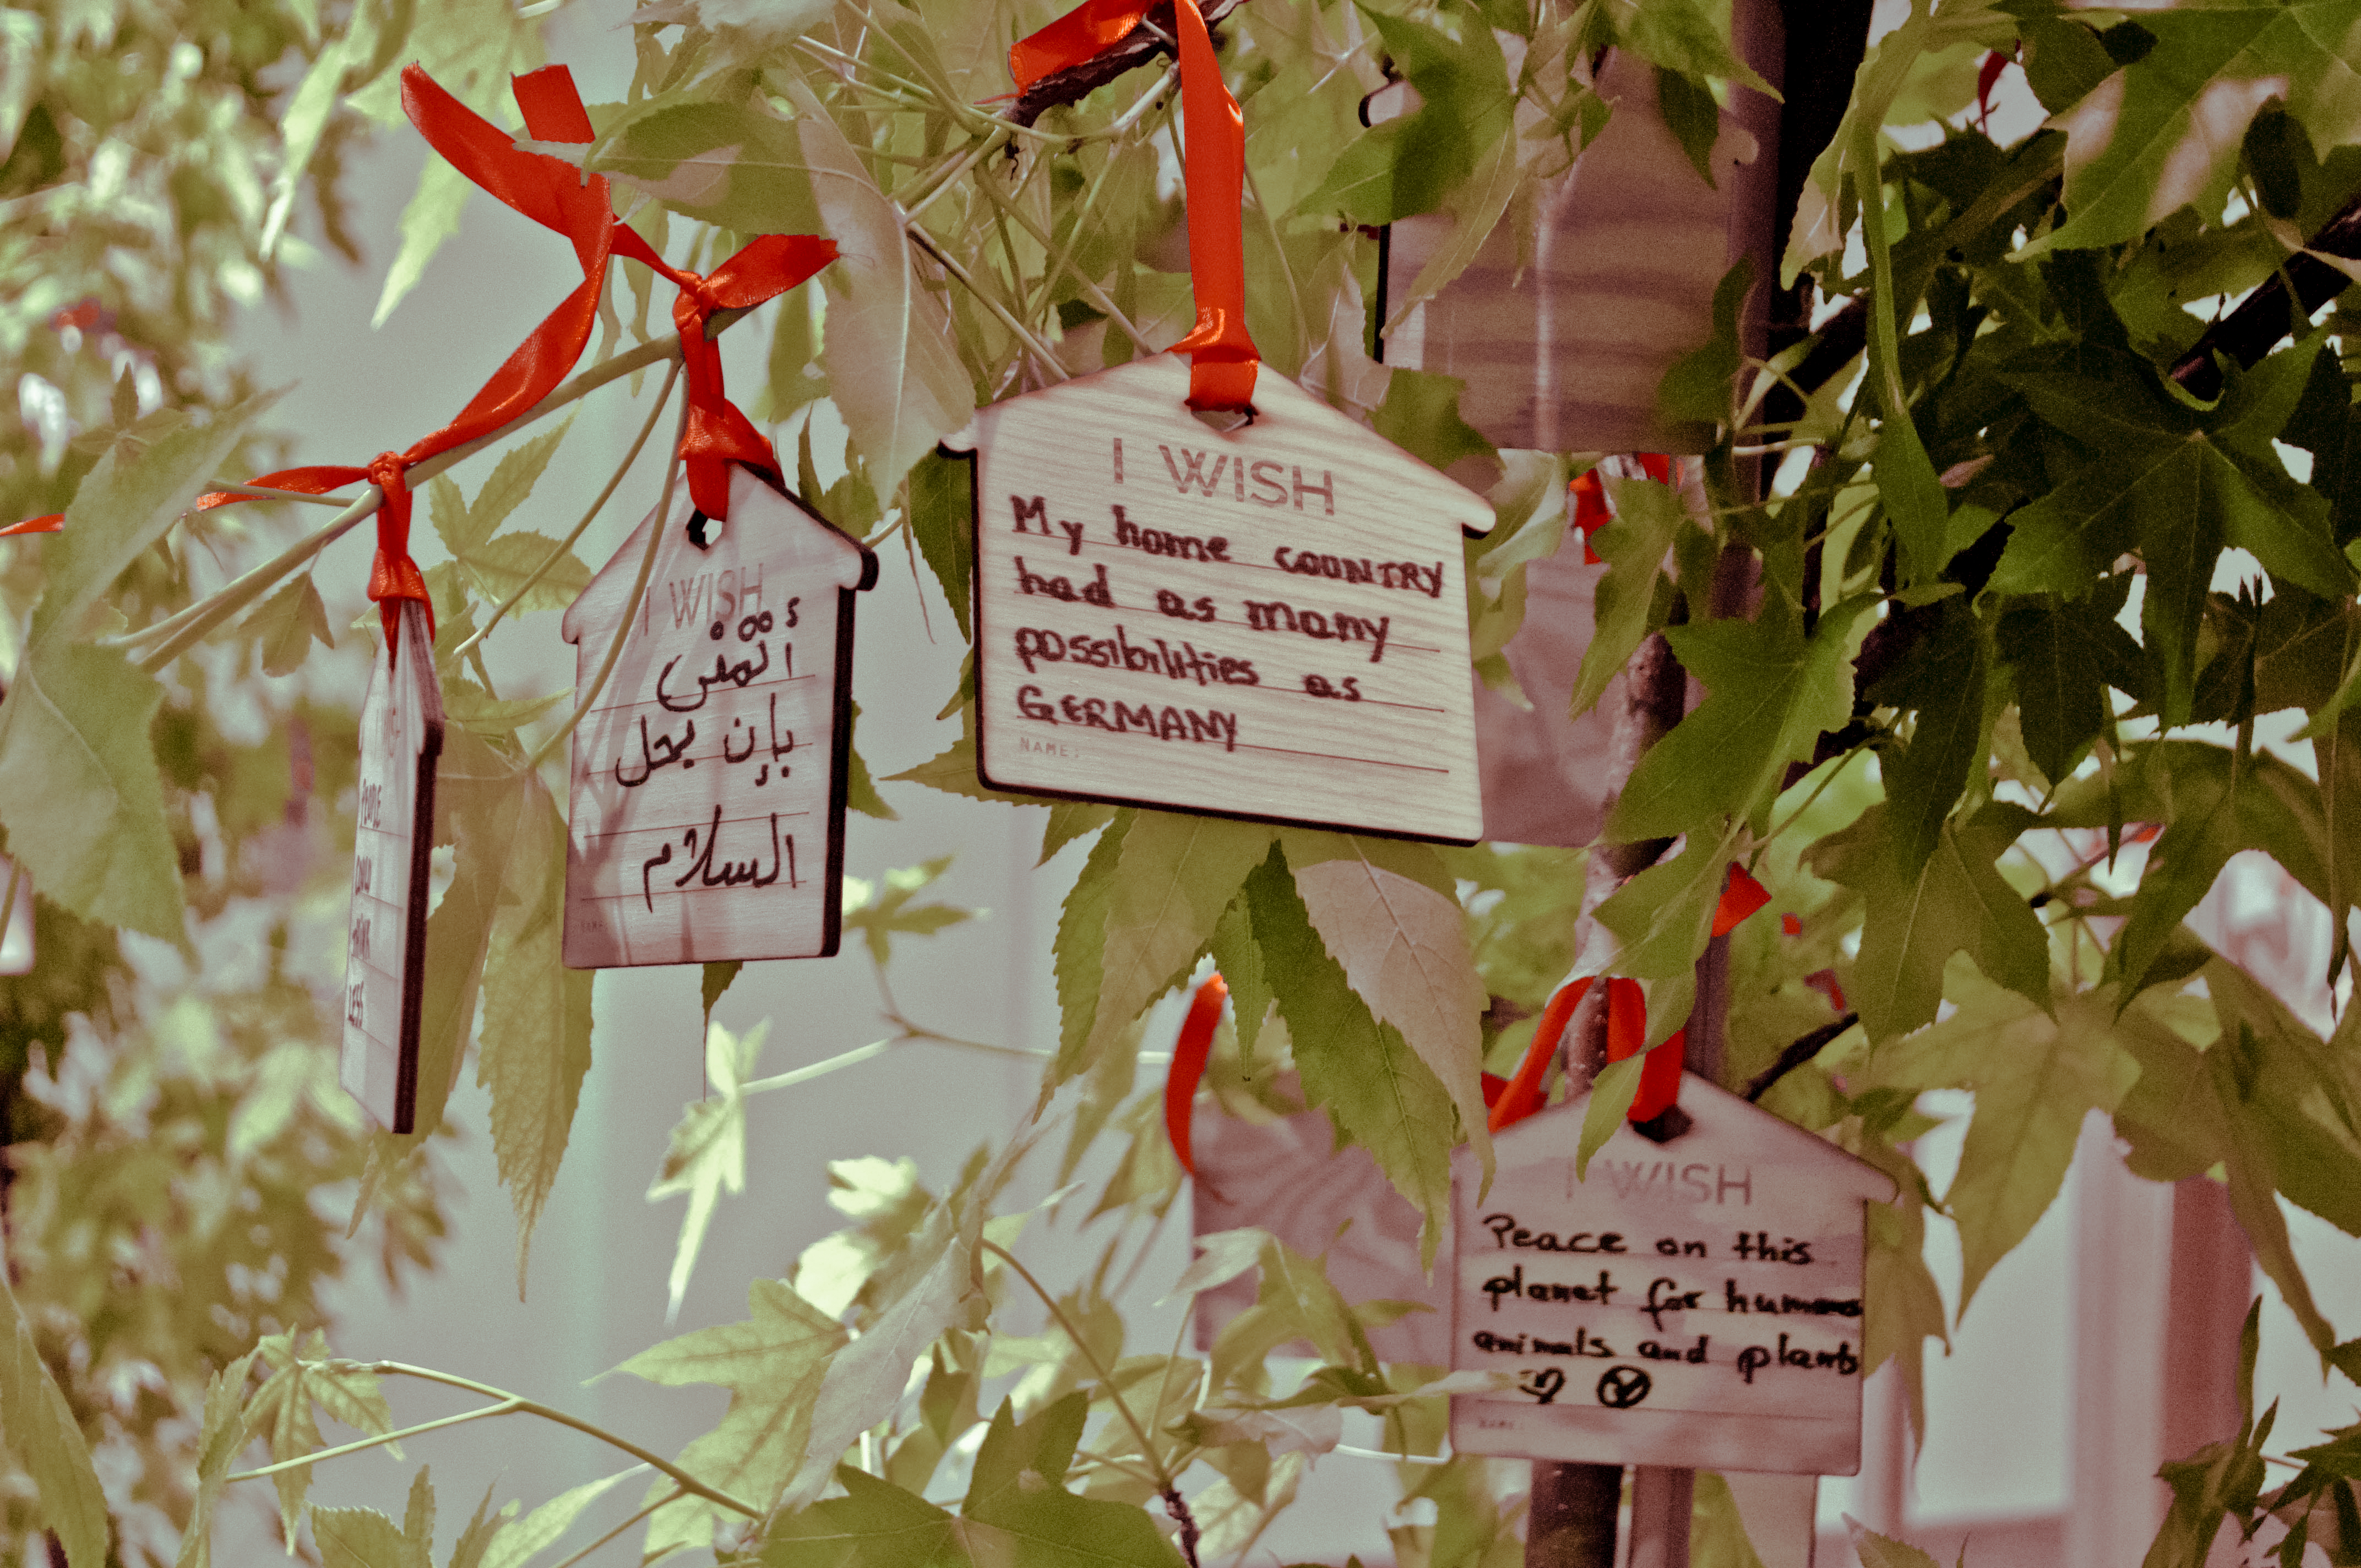 PEOPLE
COULD
THINK
LESS
I WISH
أتمنى
بإن يحل
السلام
NAME:
I WISH
My home COUNTRY
had as many
possibilities as
GERMANY
NAME:
I WISH
Peace on this
planet for humans
animals and plants
NAME: